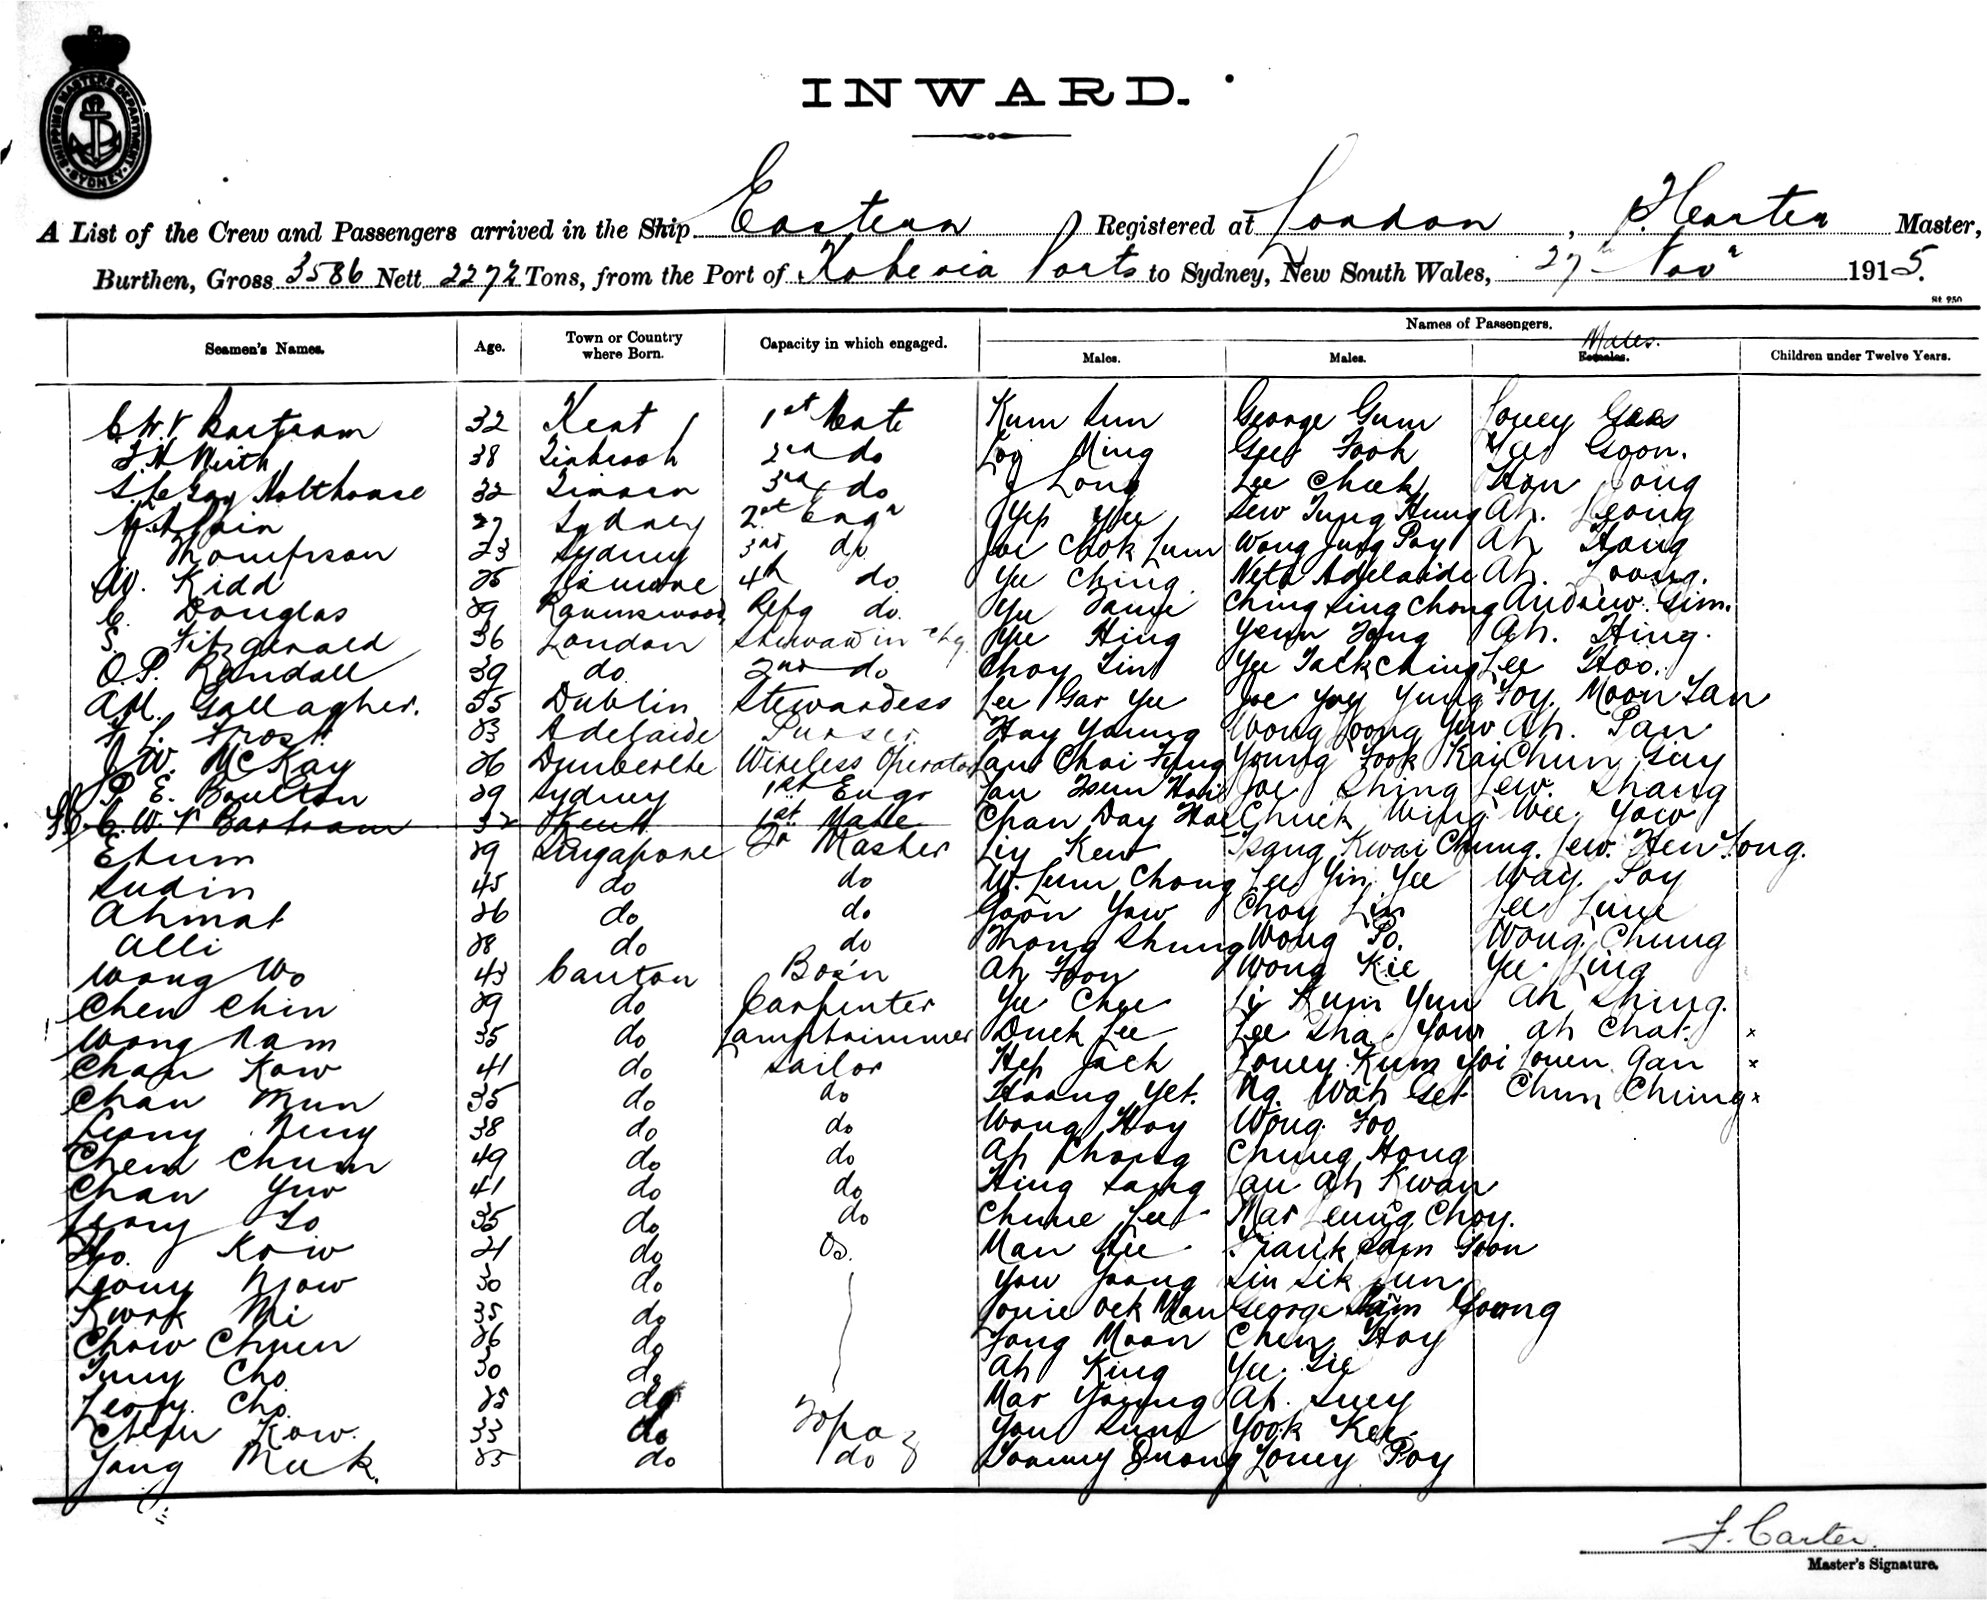 SHIPPING MASTERS DEPARTMENT · SYDNEY ·
INWARD.
A List of the Crew and Passengers arrived in the Ship Eastern Registered at London, Master,
Burthen, Gross 3586 Nett 2272 Tons, from the Port of Kobe via Ports to Sydney, New South Wales, 27th Novr 1915.
Seamen's Names. Age. Town or Country where Born. Capacity in which engaged. Names of Passengers.
Males. Males. Males. Females. Children under Twelve Years.
C.W.V Bartram 32 Kent 1st Mate Kum Sun George Gum Louey
38 2nd do Ming Gee Fook Yee Goon.
Holthouse 32 3rd do Long Lee Chuck Hon
27 Sydney 2nd Engr Yep Yee Lew Tung Hung Ah. Leong
J Thompson 23 Sydney 3rd do Joe Chok Lum Wong Jung Poy Ah Hong
W. Kidd 25 Lismore 4th do Yee Ching. Neta Adelaide Ah.
C. Douglas 29 Ravenswood Refg do. Yee Ching Sing Chong Andrew Sim.
S. Fitzgerald 36 London Steward in Chg. Yee Hing Yenn Fong Ah. Hing.
O.P. Randall 39 do 2nd do Choy Lin Yee Tack Ching Lee Hoo.
A.M. Gallagher. 55 Dublin Stewardess Lee Gar Yee Joe Yoy Yung Foy. Moon Lan
F. L. Frost 23 Adelaide Purser Hay Young Wong Foong Yew Ah. Pan
J W. McKay 26 Wireless Operator Lau Chai Fung Young Fook Kai Chun Guy
P E. Boulton 29 Sydney 1st Engr Lau Tsun Hoi Joe Shing Lew. Shang
C. W. V Bartram 32 Kent 1st Mate Chan Day Hoe Chuck Wing Wee Yow
Etum 29 Singapore Qr Master Liy Kew Tsang Kwai Chung. Lew. Hen Fong.
Sudin 45 do do W. Lum Chong Lee Yin Yee Way Poy
Ahmat 26 do do Goon Yow Choy Lin Lee Lune
Alli 28 do do Thong Shung Wong Po. Wong. Chung
Wong Wo 43 Canton Bos'n Ah Foon Wong Kie Yee Ling
Chen Chin 29 do Carpenter Yee Chee Li Kum Yun Ah Shing.
Wong Nam 35 do Lamptrimmer Duck Lee Lee Sha Your Ah Chat. x
Chan Kow 41 do Sailor Hep Jack Louey Kum Yoi Louen Gan x
Chan Mun 35 do do Hoong Yet. Ng. Wah Get Chun Chung x
Leong Neng 38 do do Wong Hoy Wong Foo
Chem Chum 49 do do Ah Chong Chung Hong
Chan Yuw 41 do do Hing Sang Lau Ah Kwan
Leong So 35 do do Chune Lee Mar Leung Choy.
Ho. Kow 21 do Os. Man Hee Frank Sam Goon
Leong Njow 30 do You Yoong Sin Sik Yun
Kwok Mi 35 do Louie Oek Man George Sam Young
Chow Chuen 26 do Fong Moon Chen Hoy
Tung Cho 30 do Ah King Yee Gie
Leong Cho 25 do Mar Young Ah. Suey
Chefu Kow. 33 do Topaz You Sum Yook Kee
Yang Muk. 25 do do Tommy Quong Louey Poy
F. Carter.
Master's Signature.